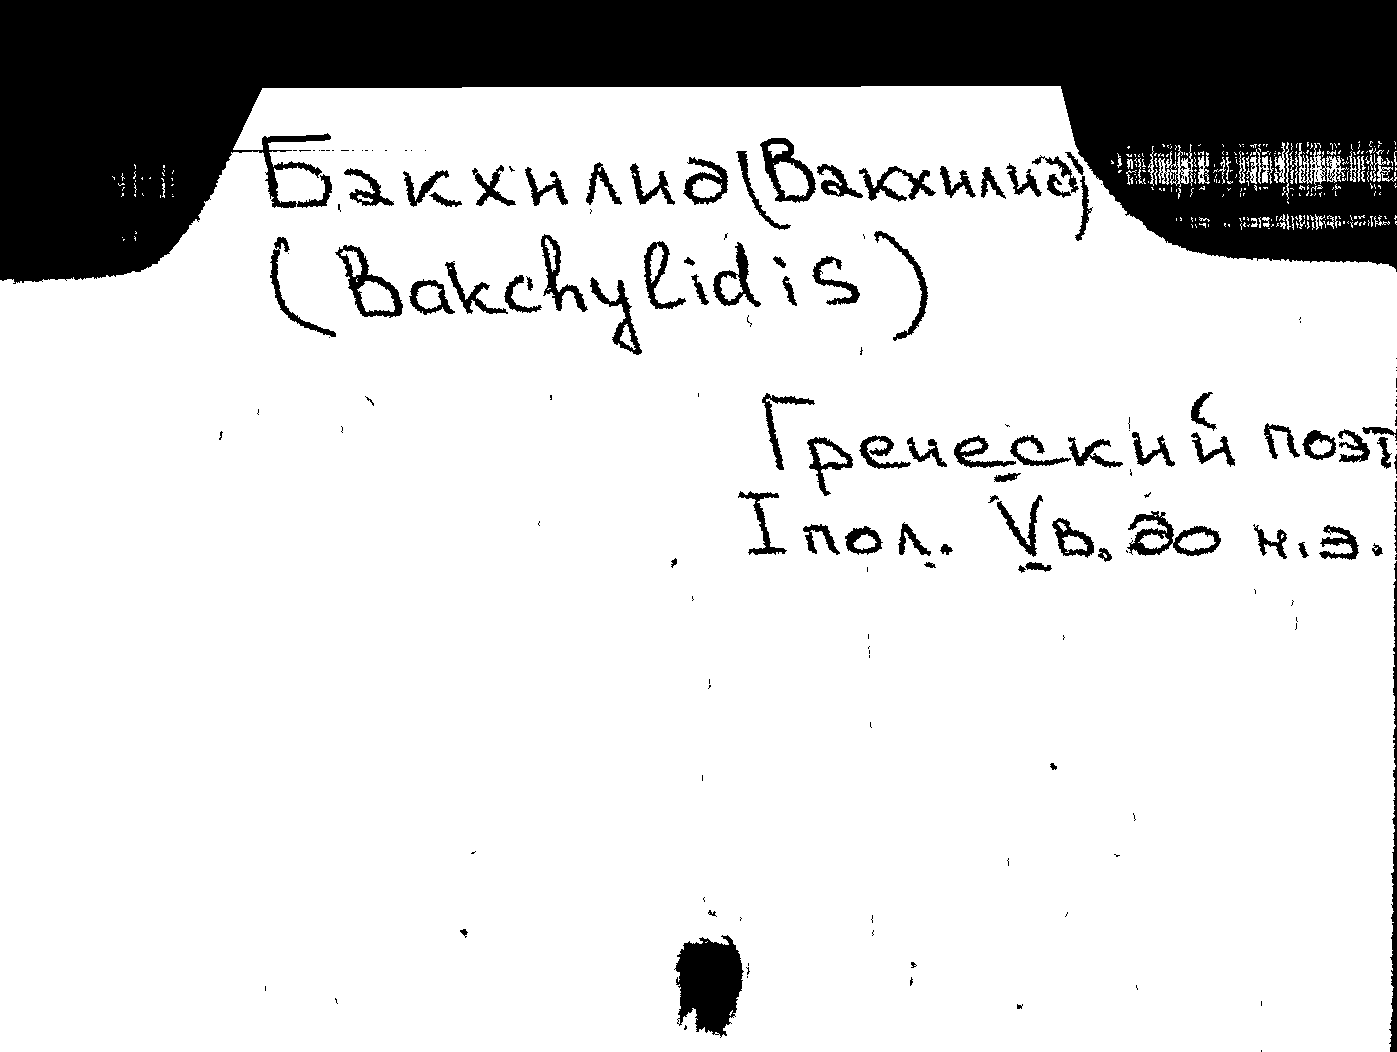 Бакхилид (Вакхилид)
(Bakchylidis)
Греческий поэт
I пол. V в. до н.э.